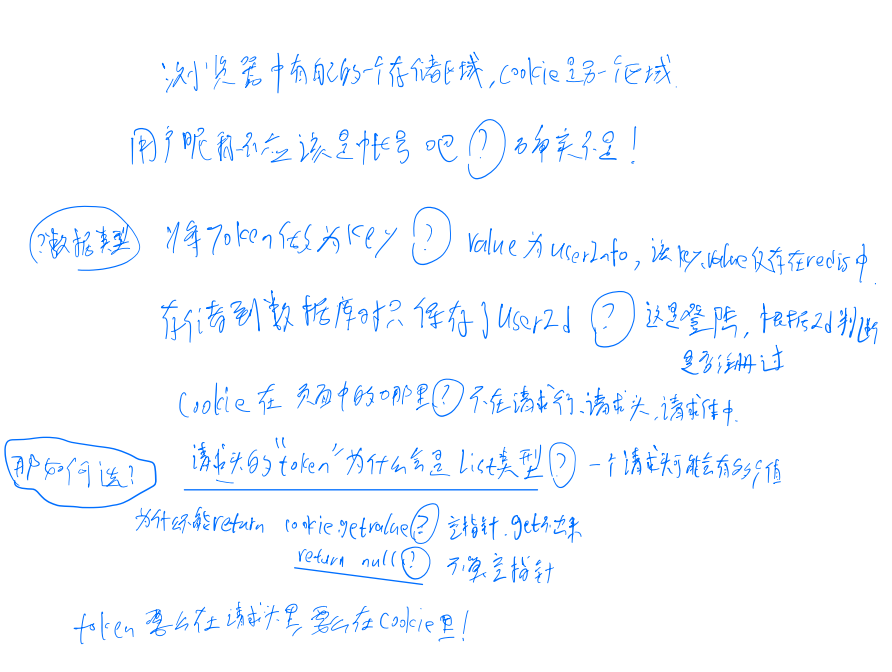 浏览器中有自己的一个存储区域,Cookie是另一个区域.
用户昵称不应该是帐号吧?确实不是!
?数据类型 将Token作为Key? value为UserInfo,该key,value仅存在redis中.
存储到数据库时只保存了UserId? 这是登陆,根据Id判断
是否注册过
Cookie在页面中的哪里?不在请求行、请求头、请求体中.
那如何选? 请求头的"token"为什么会是List类型?一个请求头可能会有多个值
为什么不能return cookie.getvalue?空指针.get不出来
return null?不算空指针
token要么在请求头里,要么在Cookie里!